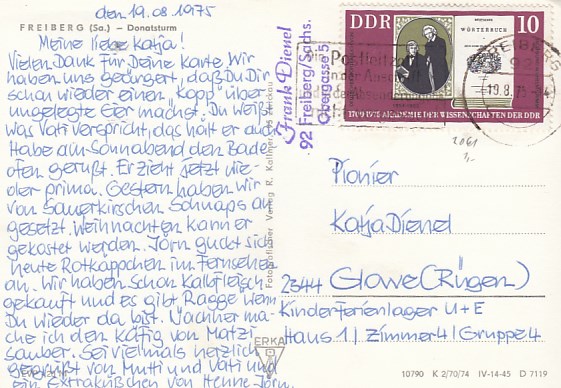 den 19.08.1975
FREIBERG (Sa.) – Donatsturm
Meine liebe Katja!
Vielen Dank für Deine Karte. Wir
haben uns geärgert, daß Du Dir
schon wieder einen "Kopp" über
ungelegte Eier machst. Du weißt
was Vati verspricht, das hält er auch
Habe am Sonnabend den Bade
ofen gerußt. Er zieht jetzt wie-
der prima. Gestern haben wir
von Sauerkirschen Schnaps an
gesetzt. Weihnachten kann er
gekostet werden. Jörn guckt sich
heute Rotkäppchen im Fernsehen
an. Wir haben schon Kalbfleisch
gekauft und es gibt Ragge wenn
Du wieder da bist. Nachher ma-
che ich den Käfig von Matzi
sauber. Sei vielmals herzlich
gegrüßt von Mutti und Vati und
ein Extraküßchen von Henne-Jörn.
Fotografischer Verlag R. Kallmer, Zwickau
Frank Dienel
92 Freiberg/Sachs.
Obergasse 5
DDR
WÖRTERBUCH
10
1700 1975 AKADEMIE DER WISSENSCHAFTEN DER DDR
Postleitzahl
in der Anschrift
FREIBERG
92
19.8.75
2061
1,-
Pionier
Katja Dienel
2344 Glowe (Rügen)
Kinderferienlager U+E
Haus 1 / Zimmer 4 / Gruppe 4
ERKA
10790 K 2/70/74 IV-14-45 D 7119